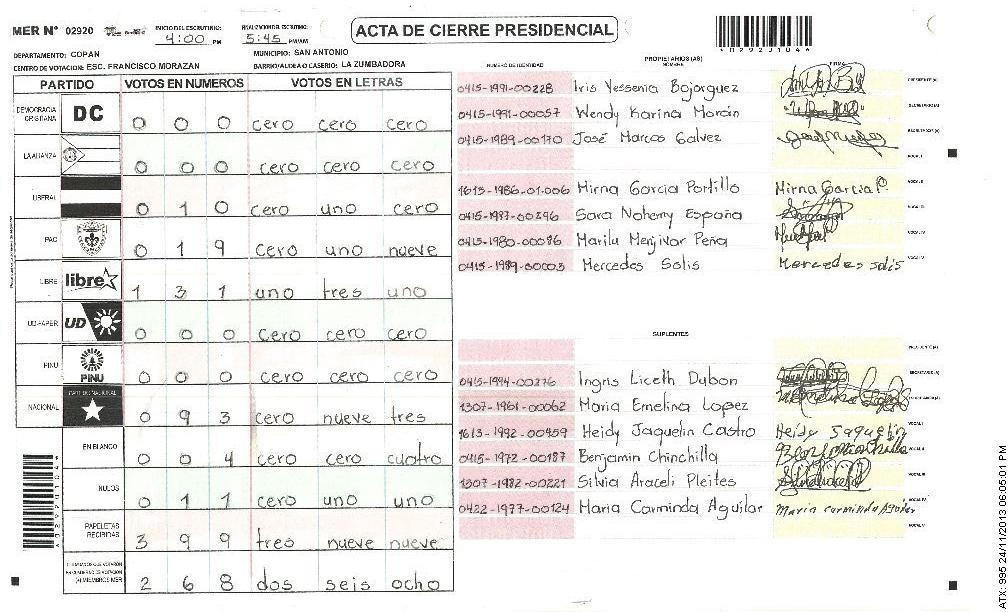 MER Nº 02920
INICIO DEL ESCRUTINIO: 4:00 PM
FINALIZACION DEL ESCRUTINIO: 5:45 PM/AM
ACTA DE CIERRE PRESIDENCIAL
DEPARTAMENTO: COPAN
MUNICIPIO: SAN ANTONIO
CENTRO DE VOTACION: ESC. FRANCISCO MORAZAN
BARRIO/ALDEA O CASERIO: LA ZUMBADORA
PARTIDO VOTOS EN NUMEROS VOTOS EN LETRAS
DEMOCRACIA CRISTIANA DC 0 0 0 cero cero cero
LA ALIANZA 0 0 0 cero cero cero
LIBERAL 0 1 0 cero uno cero
PAC 0 1 9 cero uno nueve
LIBRE libre 1 3 1 uno tres uno
UD-FAPER UD 0 0 0 cero cero cero
PINU PINU 0 0 0 cero cero cero
NACIONAL PARTIDO NACIONAL 0 9 3 cero nueve tres
EN BLANCO 0 0 4 cero cero cuatro
NULOS 0 1 1 cero uno uno
PAPELETAS RECIBIDAS 3 9 9 tres nueve nueve
CIUDADANOS QUE VOTARON EN CUADERNO DE VOTACION (+) MIEMBROS MER 2 6 8 dos seis ocho
PROPIETARIOS (AS)
NUMERO DE IDENTIDAD NOMBRE FIRMA
0415-1991-00228 Iris Yessenia Bojorquez PRESIDENTE (A)
0415-1991-00057 Wendy Karina Morán SECRETARIO (A)
0415-1989-00170 José Marcos Galvez
VOCAL I
1613-1986-01.006 Mirna Garcia Portillo Mirna Garcia P. VOCAL II
0415-1987-00296 Sara Nohemy España VOCAL III
0415-1980-00086 Marilu Menjivar Peña VOCAL IV
0415-1989-00003 Mercedes Solis Mercedes Solis VOCAL V
SUPLENTES
PRESIDENTE (A)
0415-1994-00276 Ingris Liceth Dubon SECRETARIO (A)
1307-1961-00062 Maria Emelina Lopez
1613-1992-00459 Heidy Jaquelin Castro Heidy Jaquelin VOCAL I
0415-1972-00187 Benjamin Chinchilla VOCAL II
1307-1982-00221 Silvia Araceli Pleites VOCAL III
0422-1977-00124 Maria Carminda Aguilar Maria carminda Aguilar VOCAL IV
VOCAL V
ATX: 995 24/11/2013 06:05:01 PM